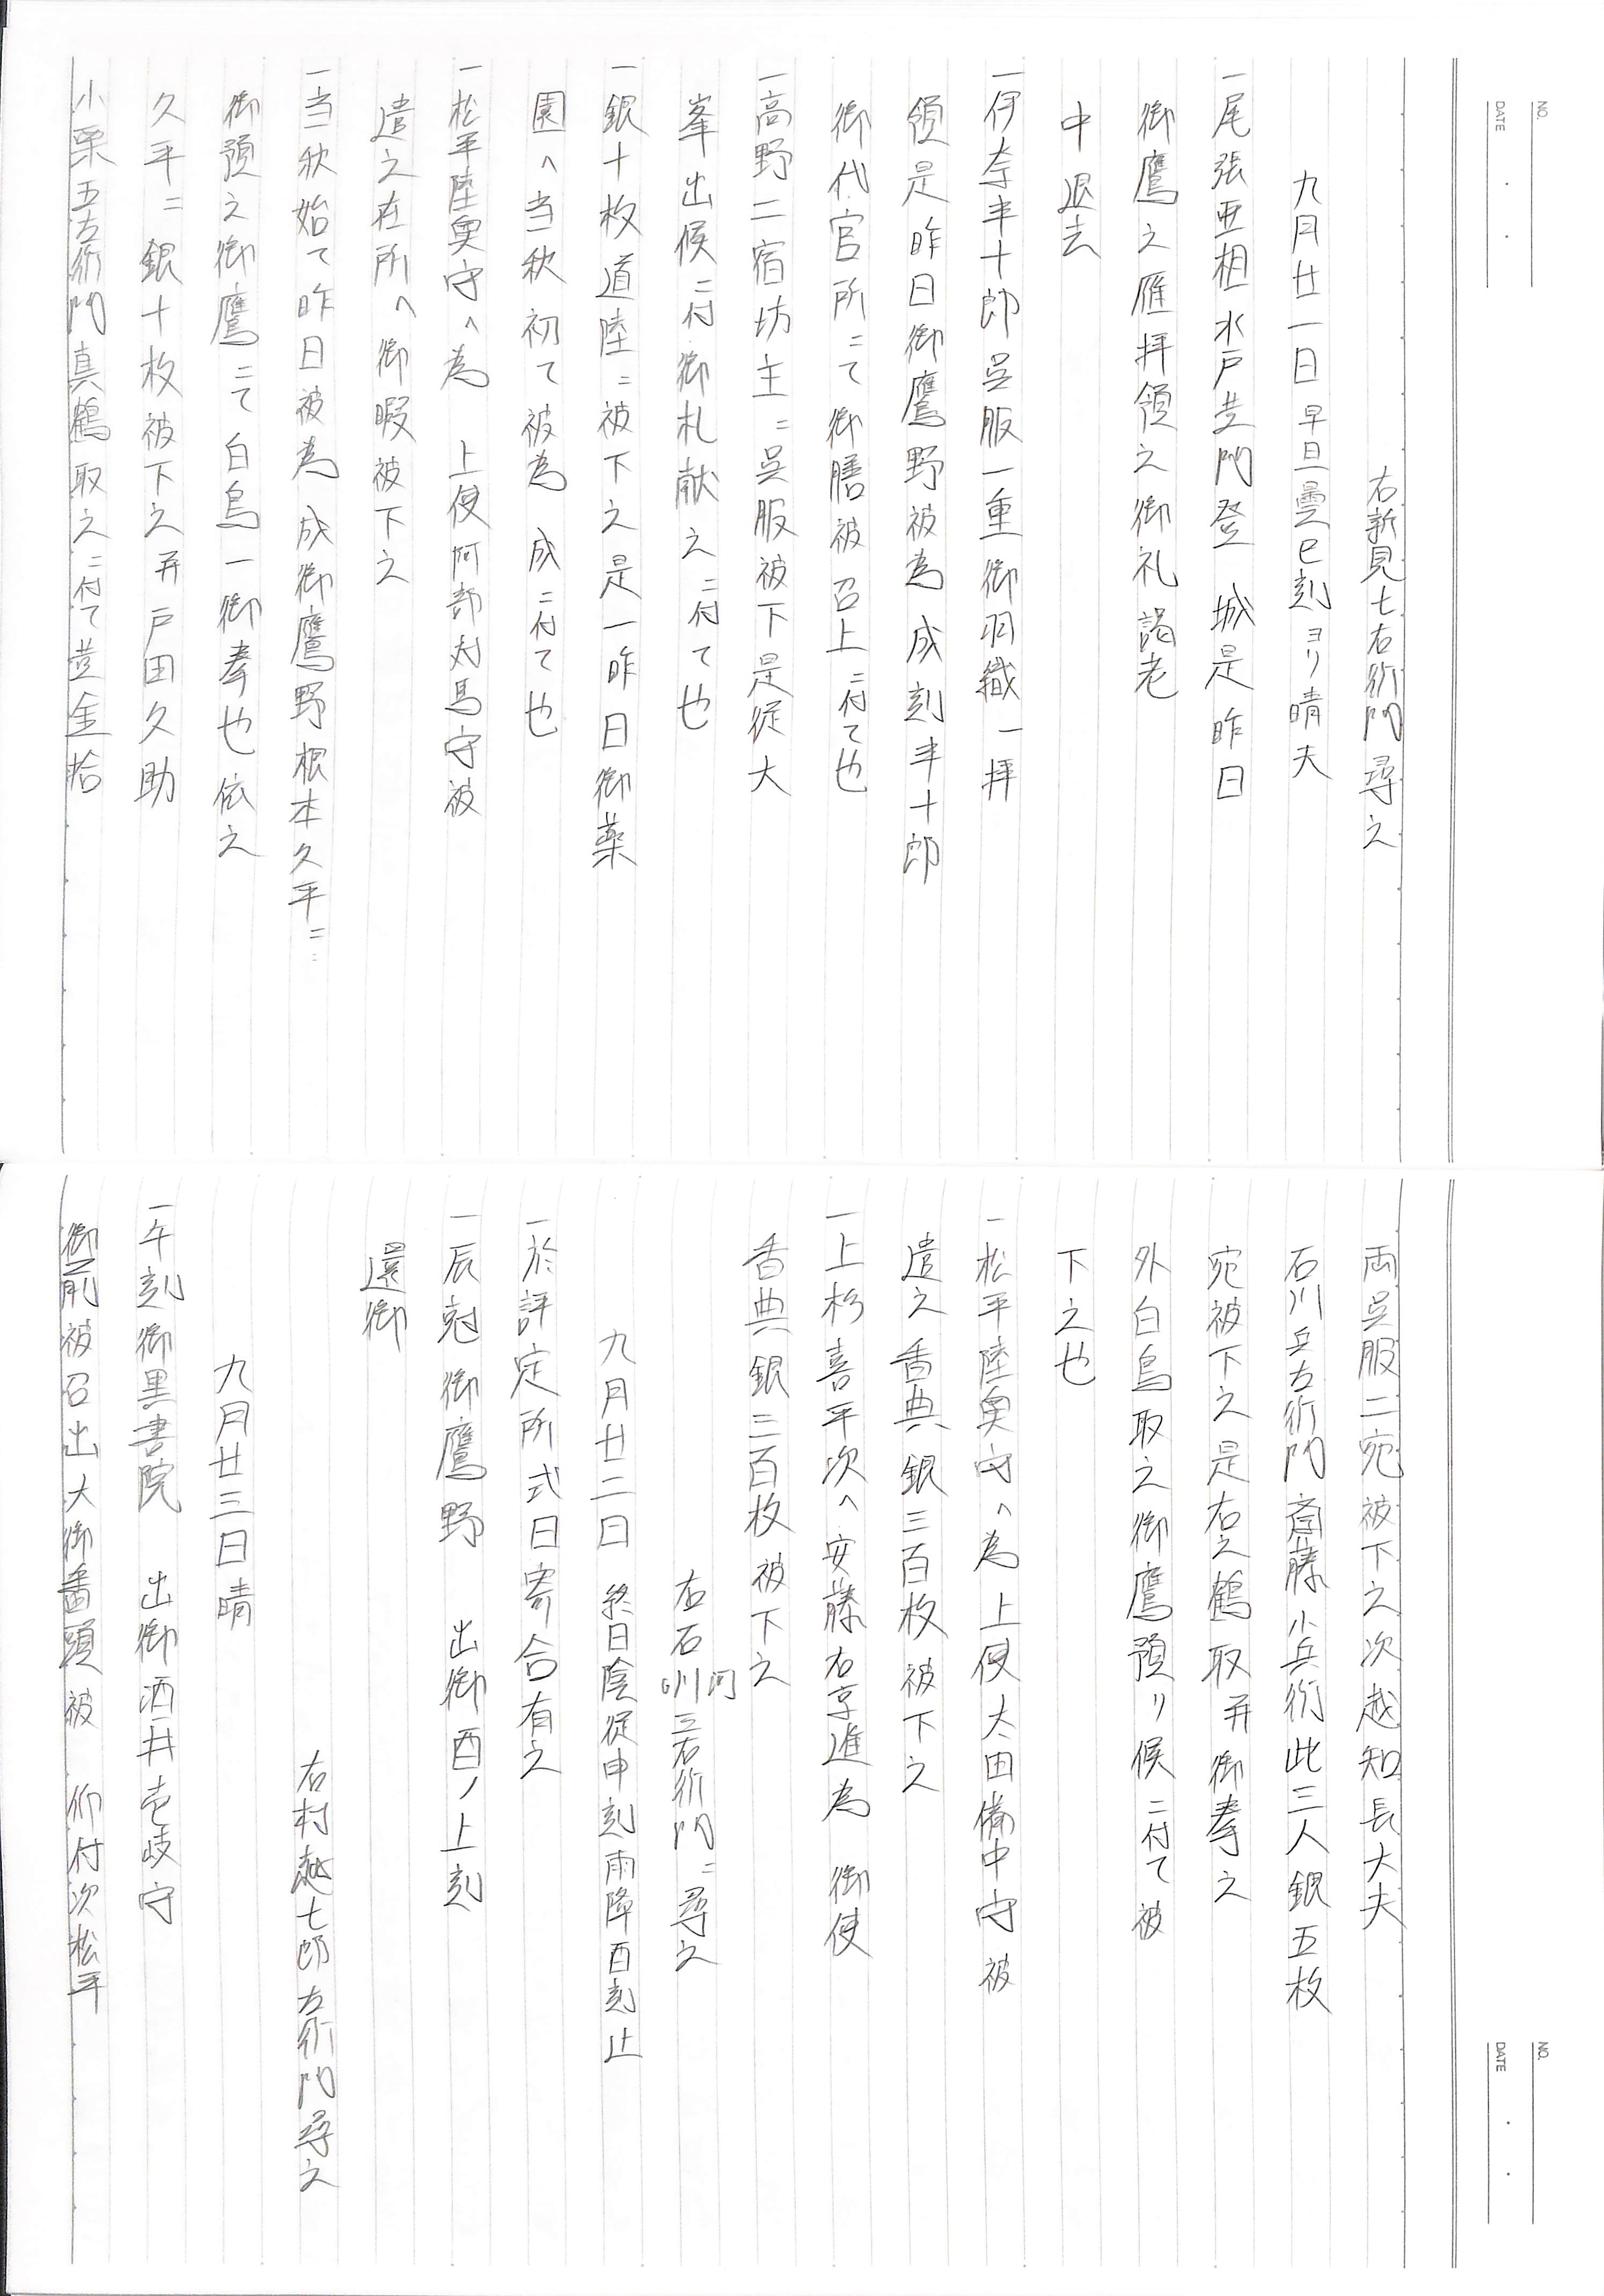 NO.
DATE
右新見七右衛門尋之
九月廿一日 早旦曇巳刻ヨリ晴天
一尾張亜相水戸黄門登 城是昨日
御鷹之雁拝領之御礼謁老
中退去
一伊奈半十郎呉服一重御羽織一拝
領是昨日御鷹野被為成刻半十郎
御代官所ニて御膳被召上ニ付て也
一高野二宿坊主ニ呉服被下是従大
峯出候ニ付御札献之ニ付て也
一銀十枚道陸ニ被下之是一昨日御薬
園へ当秋初て被為 成ニ付て也
一松平陸奥守へ為 上使阿部対馬守被
遣之在所へ御暇被下之
一当秋始て昨日被為 成御鷹野根本久平ニ
御預之御鷹ニて白鳥一御拳也依之
久平ニ銀十枚被下之并戸田久助
小栗五右衛門真鶴取之ニ付て黄金拾
NO.
DATE
両呉服二宛被下之次越知長大夫
石川兵右衛門斎藤小兵衛此三人銀五枚
宛被下之是右之鶴取并御拳之
外白鳥取之御鷹預リ候ニ付て被
下之也
一松平陸奥守へ為 上使太田備中守被
遣之香典銀三百枚被下之
一上杉喜平次へ安藤右京進為 御使
香典銀三百枚被下之
右石川三右衛門ニ尋之
河
九月廿二日 終日陰従申刻雨降酉刻止
一於評定所式日寄合有之
一辰剋御鷹野 出御酉ノ上刻
還御
右村越七郎左衛門尋之
九月廿三日晴
一午刻御黒書院 出御酒井壱岐守
御前被召出大御番頭被 仰付次松平